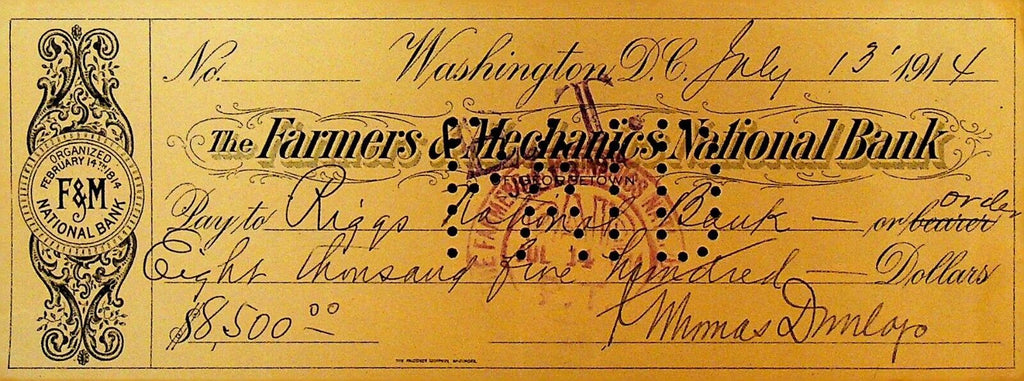 No. Washington, D.C. July 13' 1914
The Farmers & Mechanics National Bank
ORGANIZED
FEBRUARY 14TH 1814
F&M
NATIONAL BANK
PAID
order
Pay to Riggs National Bank — or bearer
Eight thousand five hundred — Dollars
$8,500.00
Thomas Dunlop